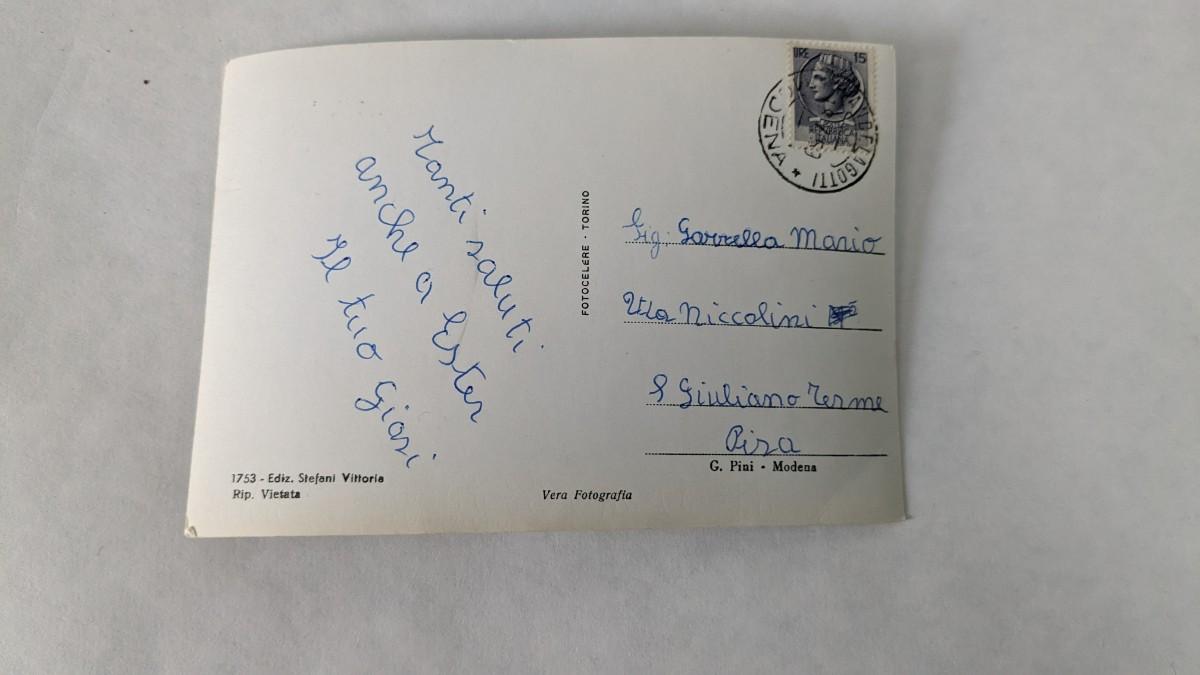 Tanti saluti
anche a Ester
Il tuo Giosi
1753 - Ediz. Stefani Vittoria
Rip. Vietata
FOTOCELERE - TORINO
Vera Fotografia
LIRE 15
REPUBBLICA
ITALIANA
Sig. Garzella Mario
Via Niccolini
S Giuliano Terme
Pisa
G. Pini - Modena